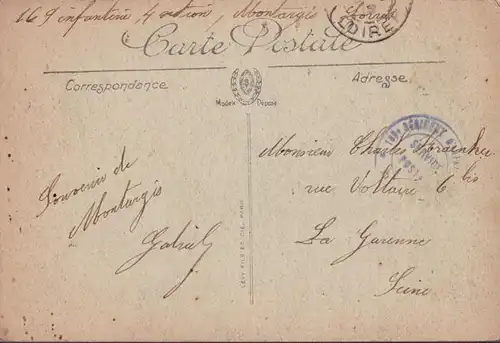 169 infanterie 4 section, Montargis Loiret
LOIRET
Carte Postale
Correspondance
Adresse
Modèle Déposé
169e RÉGIMENT D'INFA
SERVICE
POSTA
Monsieur Charles
rue Voltaire 6 bis
La Garenne
Seine
Souvenir de
Montargis
Gabriel
LEVY FILS ET CIE, PARIS